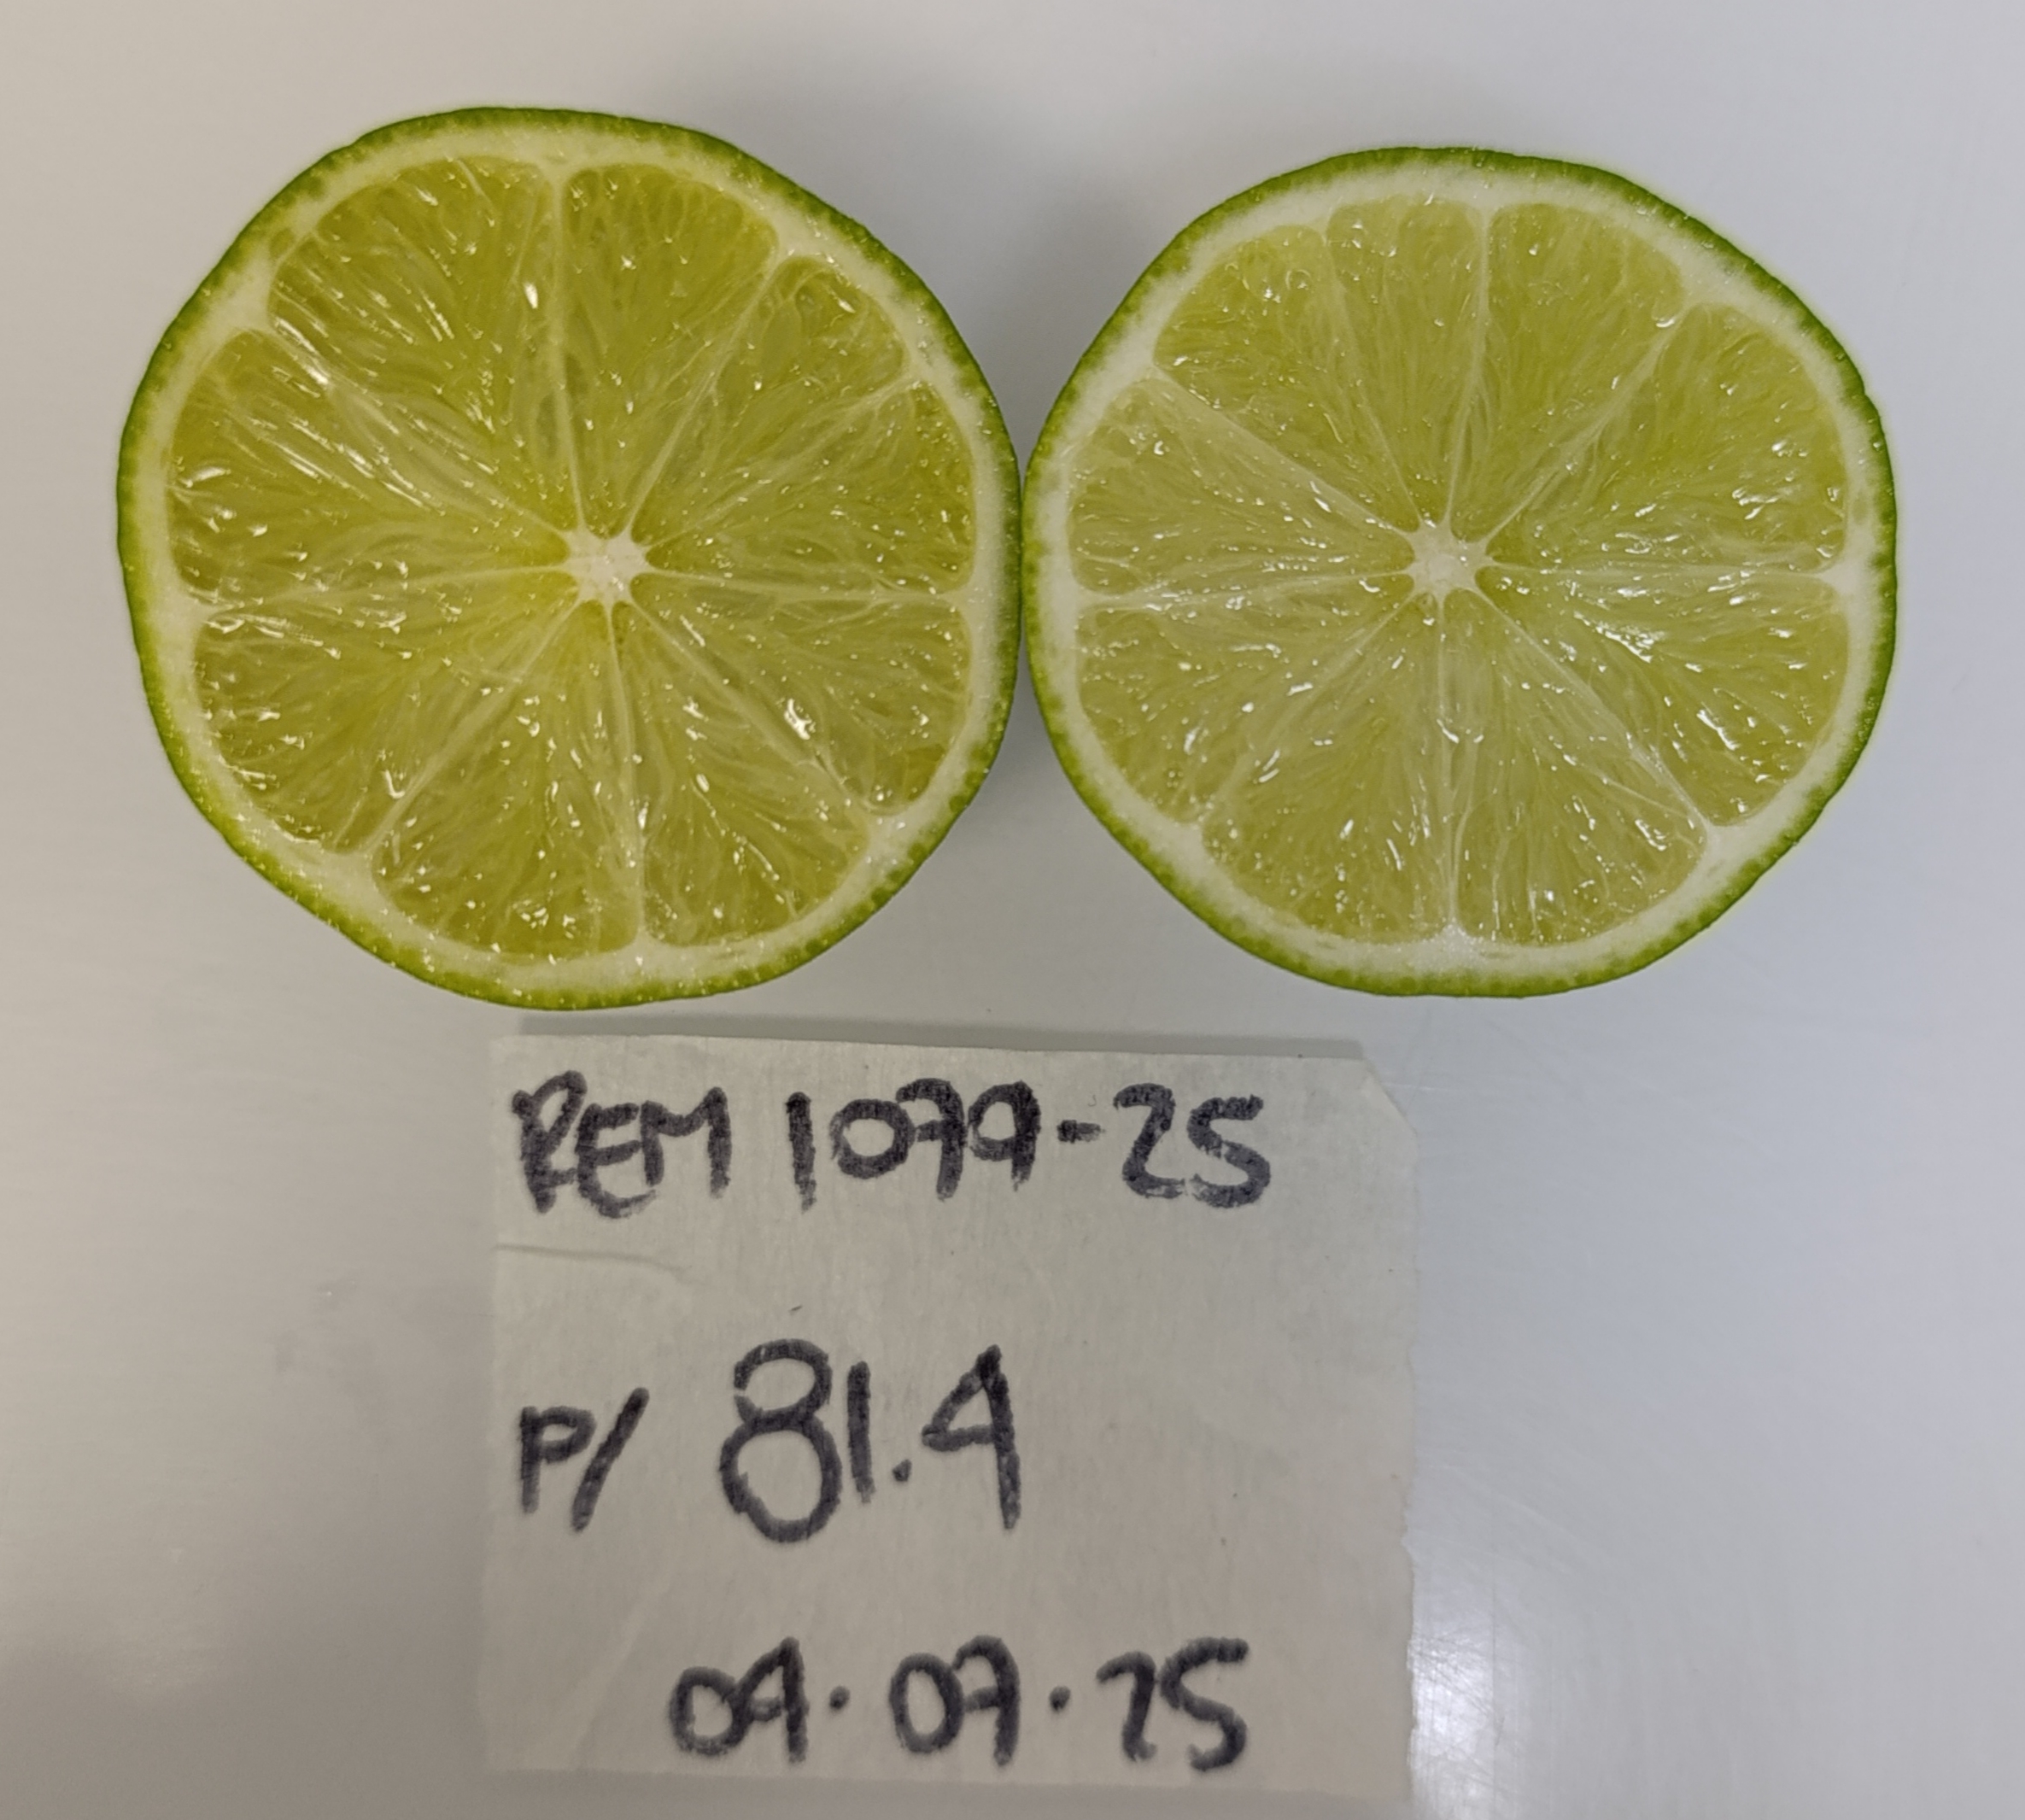 REM 1079-25
P/ 81.4
04.07.25